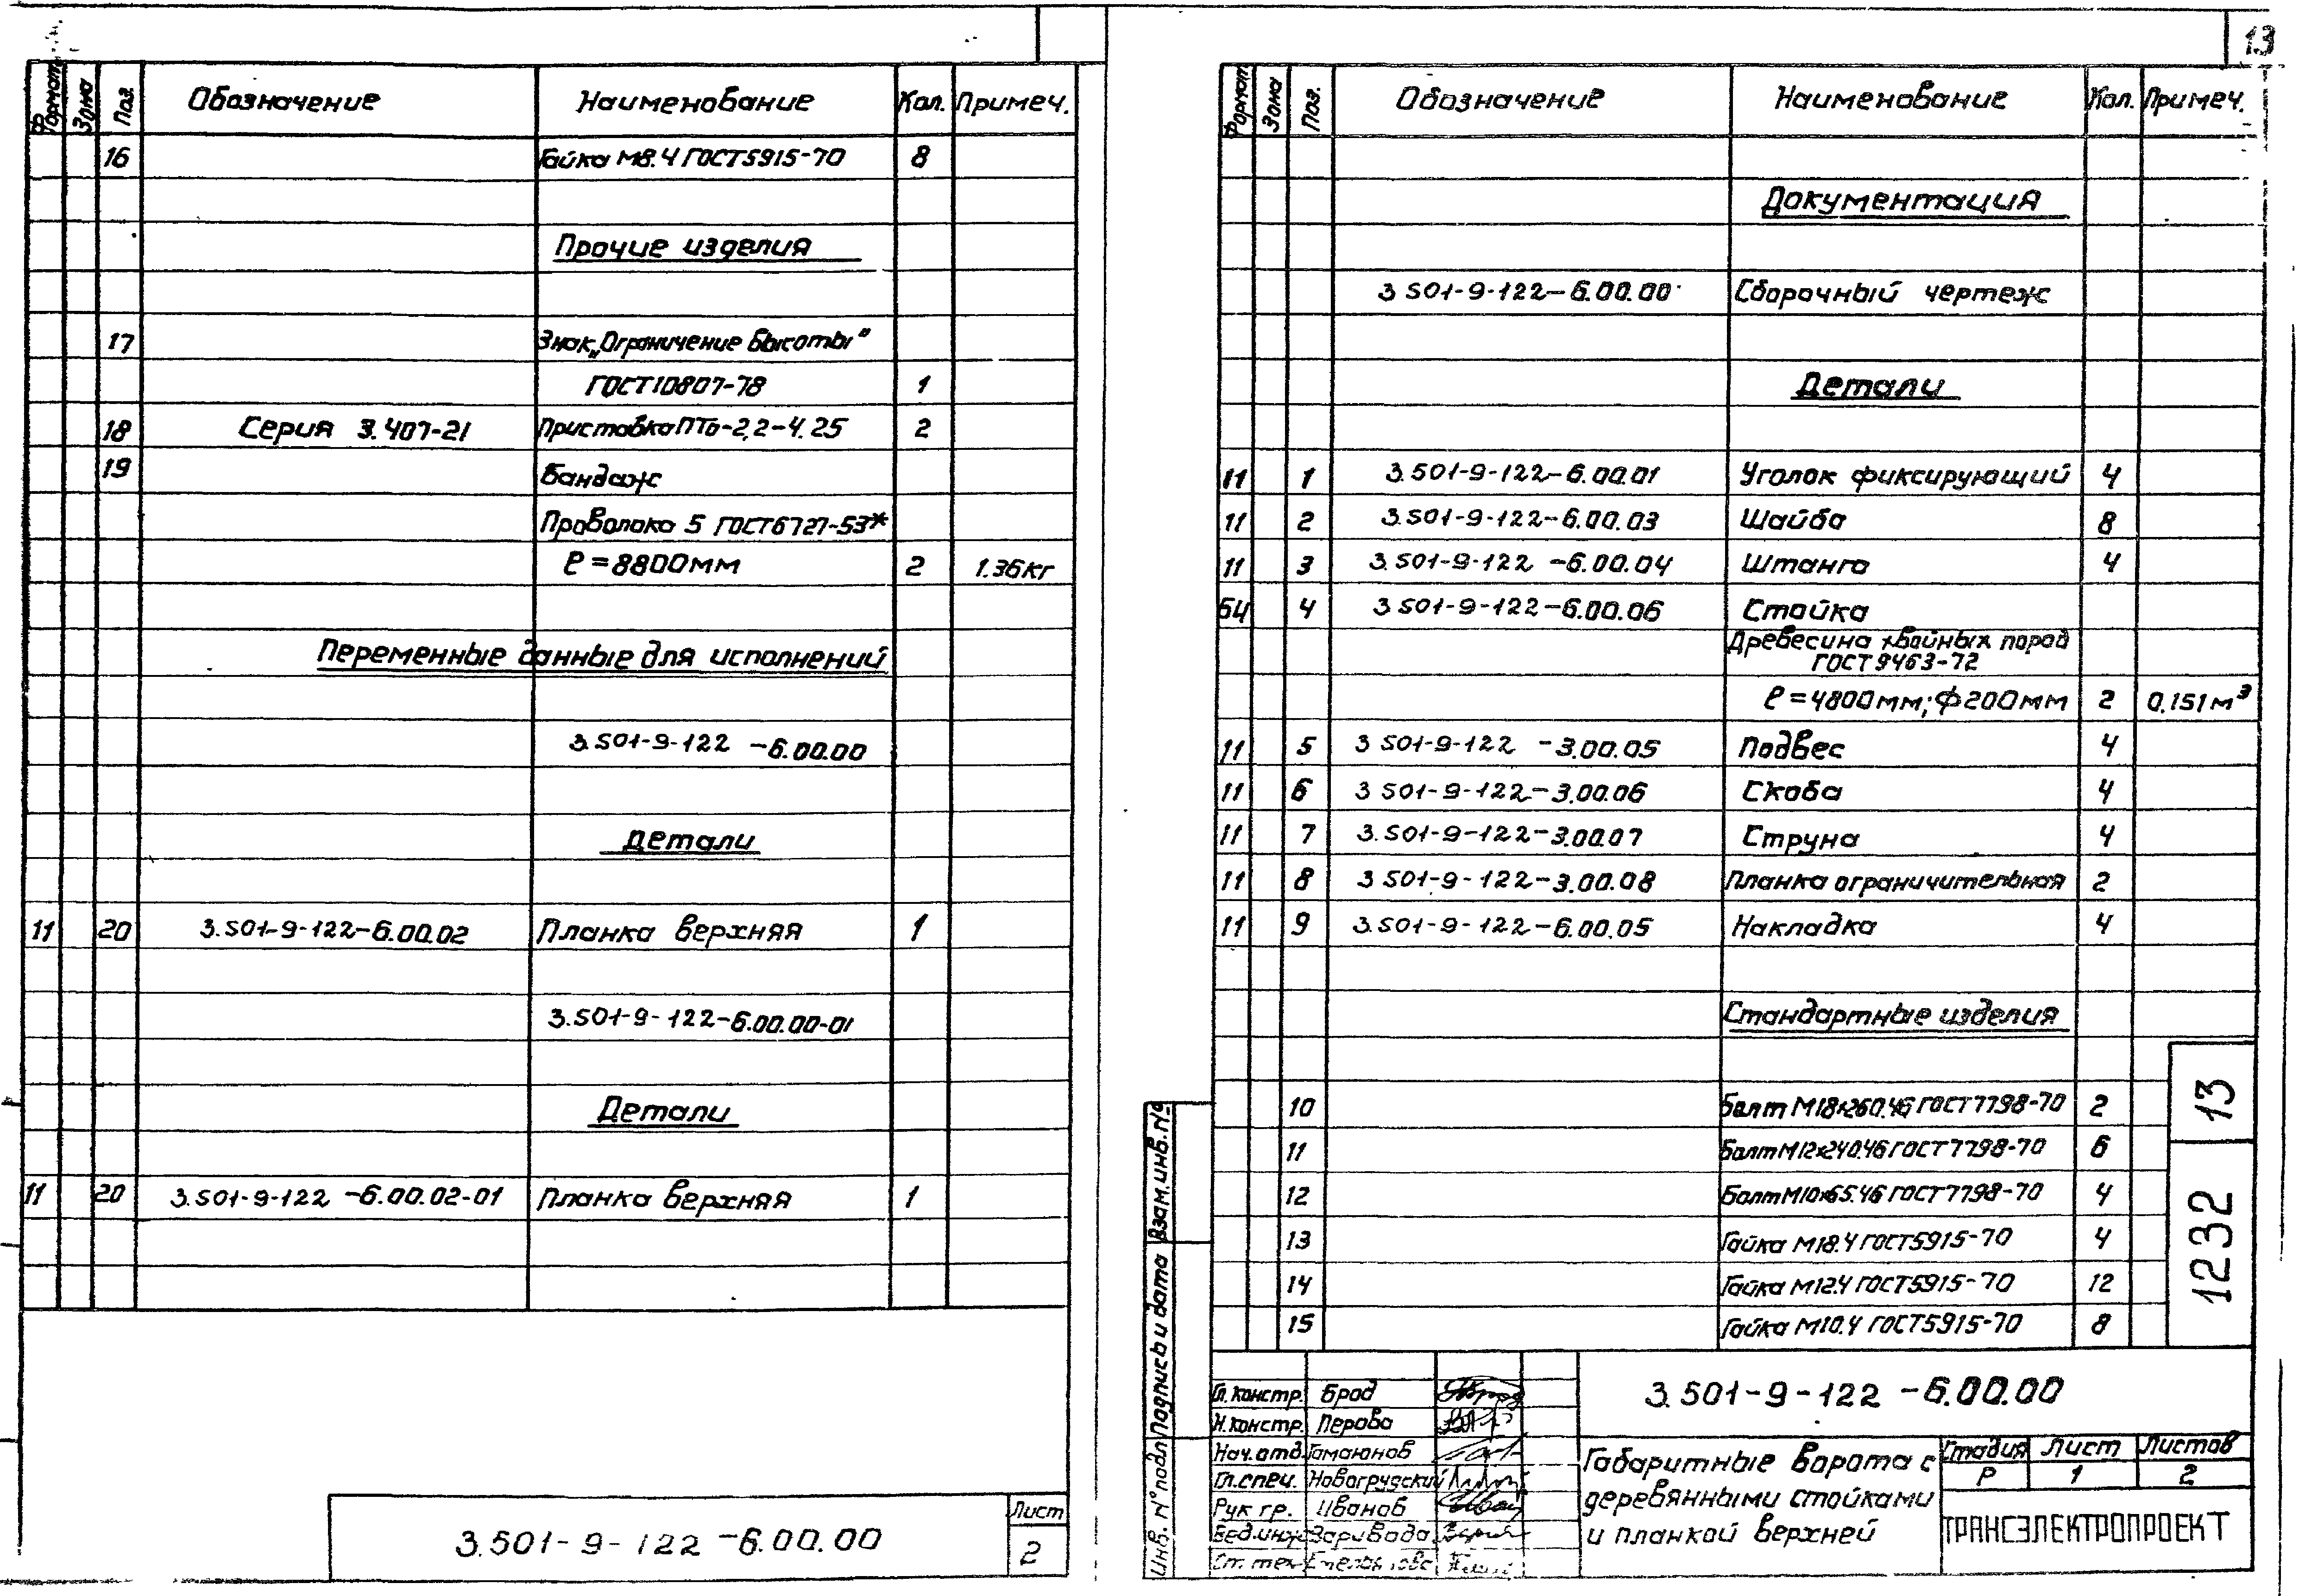 Формат Зона Поз. Обозначение Наименование Кол. Примеч.
16 Гайка М8.4 ГОСТ5915-70 8
Прочие изделия
17 Знак „Ограничение высоты"
ГОСТ10807-78 1
18 Серия 3.407-21 Приставка ПТО-2,2-4.25 2
19 Бандаж
Проволока 5 ГОСТ6727-53*
ℓ=8800мм 2 1.36кг
Переменные данные для исполнений
3.501-9-122-6.00.00
Детали
11 20 3.501-9-122-6.00.02 Планка верхняя 1
3.501-9-122-6.00.00-01
Детали
11 20 3.501-9-122-6.00.02-01 Планка верхняя 1
3.501-9-122-6.00.00
Лист
2
13
Формат Зона Поз. Обозначение Наименование Кол. Примеч.
Документация
3 501-9-122-6.00.00 Сборочный чертеж
Детали
11 1 3.501-9-122-6.00.01 Уголок фиксирующий 4
11 2 3.501-9-122-6.00.03 Шайба 8
11 3 3.501-9-122-6.00.04 Штанга 4
БЧ 4 3 501-9-122-6.00.06 Стойка
Древесина хвойных пород
ГОСТ 9463-72
ℓ=4800мм; ф200мм 2 0.151м³
11 5 3 501-9-122-3.00.05 Подвес 4
11 6 3 501-9-122-3.00.06 Скоба 4
11 7 3.501-9-122-3.00.07 Струна 4
11 8 3 501-9-122-3.00.08 Планка ограничительная 2
11 9 3.501-9-122-6.00.05 Накладка 4
Стандартные изделия
10 Болт М18х260.46 ГОСТ7798-70 2
11 Болт М12х240.46 ГОСТ7798-70 6
12 Болт М10х65.46 ГОСТ7798-70 4
13 Гайка М18.4 ГОСТ5915-70 4
14 Гайка М12.4 ГОСТ5915-70 12
15 Гайка М10.4 ГОСТ5915-70 8
1232 13
Инв. N°подл Подпись и дата Взам.инв.N°
3.501-9-122-6.00.00
Гл. констр. Брод
Н. констр. Перова
Нач. отд. Гамаюнов
Гл. спец. Новогрудский
Рук гр. Иванов
Вед.инж Заривода
Ст. тех
Габаритные ворота с
деревянными стойками
и планкой верхней
Стадия Лист Листов
Р 1 2
ТРАНСЭЛЕКТРОПРОЕКТ